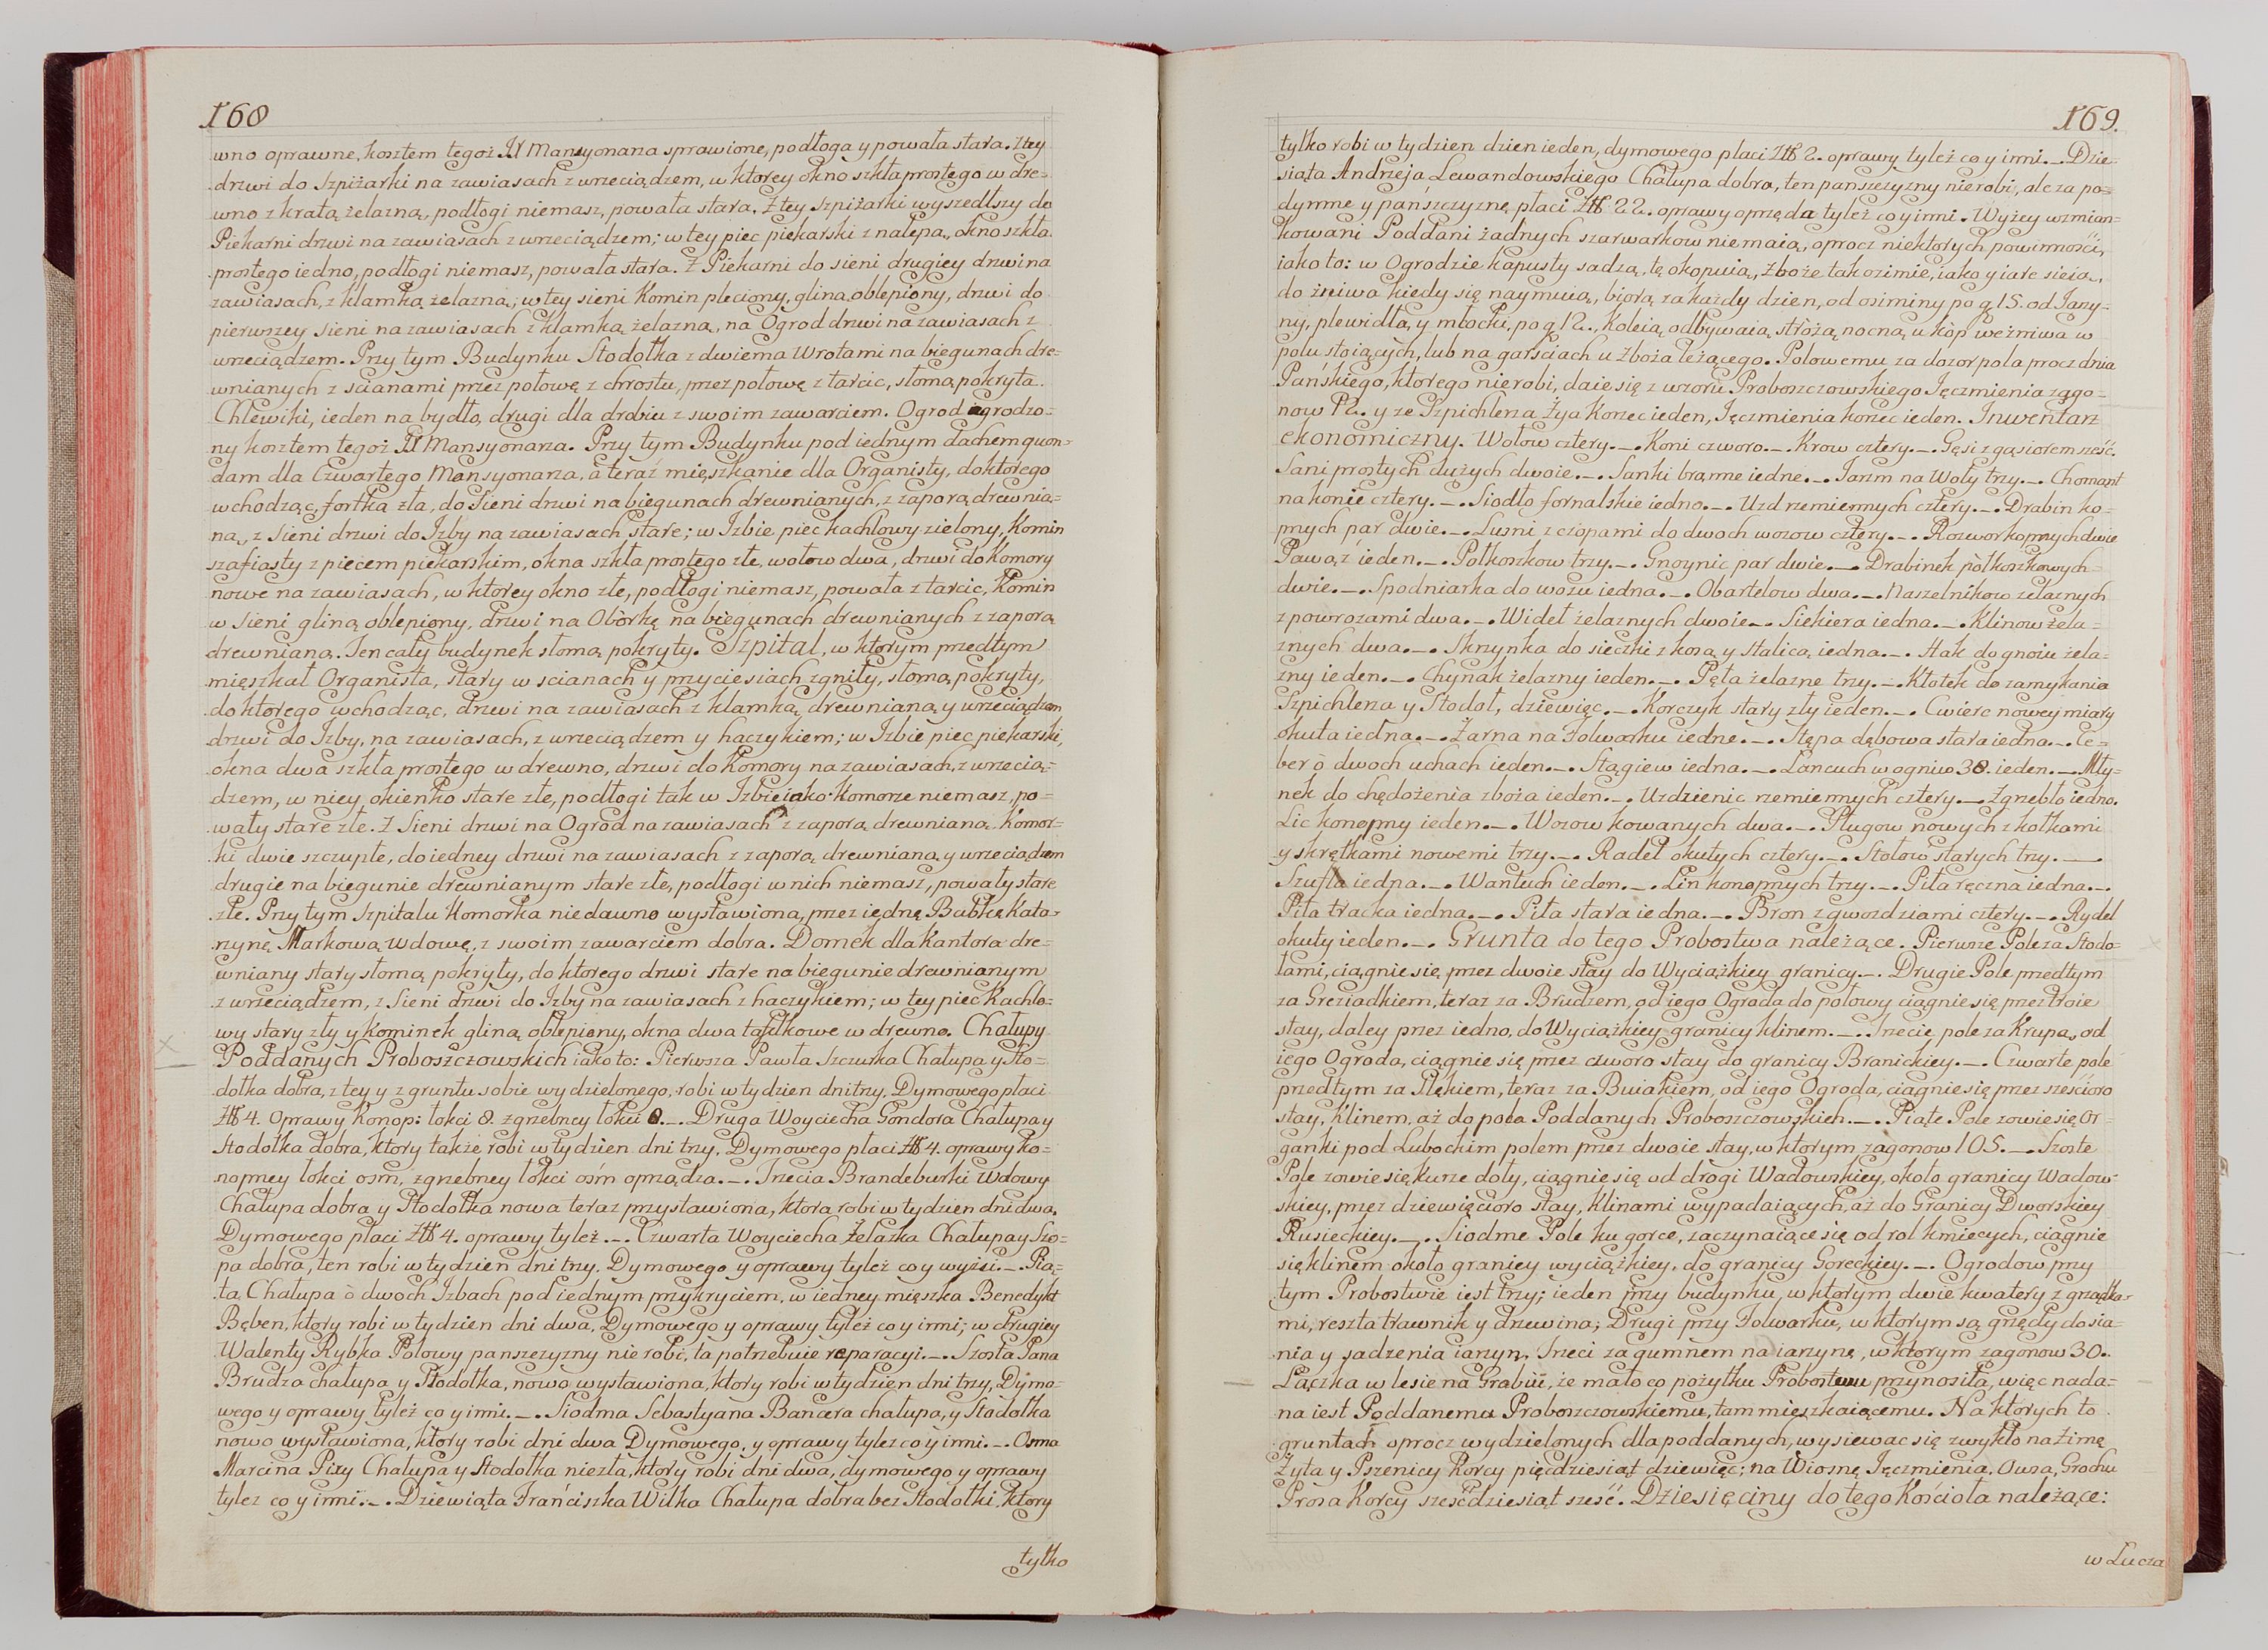 168
wno oprawne, kosztem tegoż JX Mansyonarza sprawione, podłoga y powała stara. Ztey
drzwi do Szpiżarki na zawiasach z wrzeciądzem, w ktorey okno szkła prostego w dre=
wno z kratą żelazną, podłogi niemasz, powała stara. Z tey Szpiżarki wyszedłszy do
Piekarni drzwi na zawiasach z wrzeciądzem; w tey piec piekarski z nalepą, okno szkła
prostego iedno, podłogi niemasz, powała stara. Z Piekarni do sieni drugiey drzwi na
zawiasach, z klamką żelazną; w tey sieni Komin pleciony, gliną oblepiony, drzwi do
pierwszey Sieni na zawiasach z klamką żelazną, na Ogrod drzwi na zawiasach z
wrzeciądzem. Przy tym Budynku Stodołka z dwiema Wrotami na biegunach dre=
wnianych z scianami przez połowę z chrostu, przez połowę z tarcic, słomą pokryta.
Chlewiki, ieden na bydło, drugi dla drobiu z swoim zawarciem. Ogrod ogrodzo=
ny kosztem tegoż JX Mansyonarza. Przy tym Budynku pod iednym dachem quon=
dam dla Czwartego Mansyonarza, a teraź mięszkanie dla Organisty, do ktorego
wchodząc, fortka zła, do Sieni drzwi na biegunach drewnianych, z zaporą drewnia=
ną, z Sieni drzwi do Izby na zawiasach stare; w Izbie piec kachlowy zielony, Komin
szafiasty z piecem piekarskim, okna szkła prostego złe, w ołow dwa, drzwi do Komory
nowe na zawiasach, w ktorey okno złe, podłogi niemasz, powała z tarcic, Komin
w Sieni gliną oblepiony, drzwi na Obòrkę na biegunach drewnianych z zaporą
drewnianą. Ten cały budynek słomą pokryty. Szpital, w ktorym przedtym
mięszkał Organista, stary w scianach y przyciesiach zgniły, słomą pokryty,
do ktorego wchodząc, drzwi na zawiasach z klamką drewnianą y wrzeciądzem
drzwi do Izby, na zawiasach, z wrzeciądzem y haczykiem; w Izbie piec piekarski,
okna dwa szkła prostego w drewno, drzwi do Komory na zawiasach, z wrzecią=
dzem, w niey okienko stare złe, podłogi tak w Izbie iako Komorze niemasz, po=
wały stare złe. Z Sieni drzwi na Ogrod na zawiasach z zaporą drewnianą. Komor=
ki dwie szczupłe, do iedney drzwi na zawiasach z zaporą drewnianą y wrzeciądzem
drugie na biegunie drewnianym stare złe, podłogi w nich niemasz, powały stare
złe. Przy tym Szpitalu Komorka niedawno wystawiona, przez iednę Babkę Kata=
rzynę Markową Wdowę, z swoim zawarciem dobra. Domek dla Kantora dre=
wniany stary słomą pokryty, do ktorego drzwi stare na biegunie drewnianym
z wrzeciądzem, z Sieni drzwi do Izby na zawiasach z haczykiem; w tey piec Kachlo=
wy stary zły y Kominek gliną oblepiony, okna dwa taflkowe w drewno. Chałupy
Poddanych Proboszczowskich iako to: Pierwsza Pawła Szczurka Chałupa y Sto=
dołka dobra, z tey y z gruntu sobie wydzielonego, robi w tydzien dni trzy. Dymowego płaci
Złł 4. Oprawy Konop: łokci 8. zgrzebney łokci 8._. Druga Woyciecha Gondora Chałupa y
Stodołka dobra, ktory także robi w tydzien dni trzy. Dymowego płaci Złł 4. oprawy ko=
nopney łokci osm, zgrzebney łokci ośm oprządza._. Trzecia Brandeburki Wdowy
Chałupa dobra y Stodołka nowa teraz przystawiona, ktora robi w tydzien dni dwa.
Dymowego płaci Złł 4. oprawy tyleż._. Czwarta Woyciecha Żelazka Chałupa y Szo=
pa dobra, ten robi w tydzien dni trzy. Dymowego y oprawy tyleż co y wyżsi._. Pią=
ta Chałupa ò dwoch Izbach pod iednym przykryciem, w iedney mięszka Benedykt
Bęben, ktory robi w tydzien dni dwa, Dymowego y oprawy tyleż co y inni; w drugiey
Walenty Rybka Polowy panszczyzny nie robi, ta potrzebuie reparacyi._. Szosta Jana
Brudza chałupa y Stodołka, nowo wystawiona, ktory robi w tydzien dni trzy, Dymo=
wego y oprawy tyleż co y inni._. Siodma Sebastyana Bancera chałupa, y Stodołka
nowo wystawiona, ktory robi dni dwa Dymowego, y oprawy tylez co y inni._. Osma
Marcina Pizy Chałupa y Stodołka niezła, ktory robi dni dwa, dymowego y oprawy
tylez co y inni._. Dziewiąta Franciszka Wilka Chałupa dobra bez Stodołki, ktory
tylko
169.
tylko robi w tydzien dzien ieden, dymowego płaci Złł 2. oprawy tyleż co y inni._. Dzie=
siąta Andrzeja Lewandowskiego Chałupa dobra, ten panszczyzny nie robi, ale za po=
dymne y pańszczyznę płaci Złł 22. oprawy oprzęda tyleż co y inni. Wyżey wzmian=
kowani Poddani żadnych szarwarkow niemaią, oprocz niektorych powinności,
iako to: w Ogrodzie kapusty sadzą, tę okopuią, zboże tak ozimie, iako y iare sieią,
do żniwa kiedy się naymuią, biorą za każdy dzien, od oziminy po g 15. od Jarzy=
ny, plewidła, y młocki, po g 12., Koleią odbywaią stròżą nocną u kòp weżniwa w
polu stoiących, lub na garsciach u zboża leżącego. Polowemu za dozor pola procz dnia
Pańskiego, ktorego nie robi, daie się z wzoru Proboszczowskiego Jęczmienia zago=
now 12. y ze Szpichlerza Żyta Korzec ieden, Jęczmienia korzec ieden. Inwentarz
ekonomiczny. Wołow cztery._. Koni czworo._. Krow cztery._. Gęsi z gąsiorem sześć.
Sani prostych dużych dwoie._. Sanki bramne iedne._. Jarzm na Woły trzy._. Chomąt
na konie cztery._. Siodło fornalskie iedno._. Uzd rzemiennych cztery._. Drabin ko=
pnych par dwie._. Lusni z czopami do dwoch wozow cztery._. Rozwor kopnych dwie
Pawąz ieden._. Połkoszkow trzy._. Gnoynic par dwie._. Drabinek pòłkoszkowych
dwie._. Spodniarka do wozu iedna._. Obartelow dwa._. Naszelnikow żelaznych
z powrozami dwa._. Wideł żelaznych dwoie._. Siekiera iedna._. Klinow żela=
znych dwa._. Skrzynka do sieczki z kosą y stalicą iedna._. Hak do gnoiu żela=
zny ieden._. Chynak żelazny ieden._. Pęta żelazne trzy._. Kłotek do zamykania
Szpichlerza y Stodoł, dziewięc._. Korczyk stary zły ieden._. Cwierc nowey miary
okuta iedna._. Żarna na Folwarku iedne._. Stępa dębowa stara iedna._. Ce=
ber ò dwoch uchach ieden._. Stągiew iedna._. Łancuch w ogniw 38. ieden._. Mły=
nek do chędożenia zboża ieden._. Uzdzienic rzemiennych cztery._. Zgrzebło iedno.
Lic konopny ieden._. Wozow kowanych dwa._. Pługow nowych z kołkami
y skrętkami nowemi trzy._. Radeł okutych cztery._. Stołow starych trzy.__
Szufla iedna._. Wantuch ieden._. Lin konopnych trzy._. Piła ręczna iedna._.
Piła tracka iedna._. Piła stara iedna._. Bron z gwozdziami cztery._. Rydel
okuty ieden._. Grunta do tego Probostwa należące. Pierwsze Pole za Stodo=
łami, ciągnie się przez dwoie stay do Wyciązkiey granicy._. Drugie Pole przedtym
za Greziadkiem, teraz za Brudzem, od iego Ogroda do połowy ciągnie się przez troie
stay, daley przez iedno, do Wyciązkiey granicy klinem._. Trzecie pole za Krupą, od
iego Ogroda, ciągnie się przez czworo stay do granicy Branickiey._. Czwarte pole
przedtym za Stękiem, teraz za Buiakiem, od iego Ogroda, ciągnie się przez szescioro
stay, klinem, aż do pola Poddanych Proboszczowskich._. Piąte Pole zowie się Or=
ganki pod Lubochim polem przez dwoie stay, w ktorym zagonow 105._. Szoste
Pole zowie się kurze doły, ciągnie się od drogi Wadowskiey, około granicy Wadow=
skiey, przez dziewięcioro stay, klinami wypadaiących, aż do Granicy Dworskiey
Rusieckiey._. Siodme Pole ku gorce, zaczynaiące się od rol kmiecych, ciągnie
się klinem około granicy wyciązkiey, do granicy Goreckiey._. Ogrodow przy
tym Probostwie iest trzy; ieden przy budynku, w ktorym dwie kwatery z grządka=
mi, reszta trawnik y drzewina; Drugi przy Folwarku, w ktorym są grzędy do sia=
nia y sadzenia iarzyn. Trzeci za gumnem na iarzynę, w ktorym zagonow 30.
Łączka w lesie na Grabiu, że mało co pożytku Probostwu przynosiła, więc nada=
na iest Poddanemu Proboszczowskiemu, tam mięszkaiącemu. Na ktorych to
gruntach oprocz wydzielonych dla poddanych, wysiewac się zwykło na zimę
Żyta y Pszenicy Korcy pięcdziesiąt dziewięć; na Wiosnę Jęczmienia, Owsa, Grochu
Prosa Korcy sześcdziesiąt sześć. Dziesięciny do tego Kościoła należące:
w Lucza